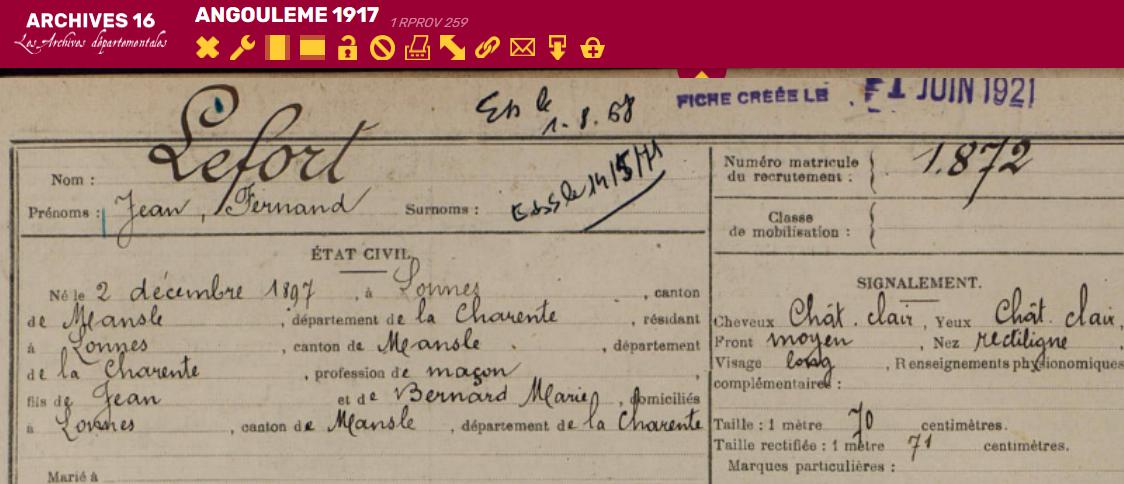 ARCHIVES 16
Les Archives départementales
ANGOULEME 1917 1 RPROV 259
Ess le
1. 8. 68
FICHE CRÉÉE LE 1 JUIN 1921
Nom : Lefort
Prénoms : Jean, Fernand Surnoms :
Esss le 14/5/71
Numéro matricule du recrutement : 1.872
Classe de mobilisation :
ÉTAT CIVIL.
Né le 2 décembre 1897, à Lonnes, canton
de Mansle, département de la Charente, résidant
à Lonnes, canton de Mansle, département
de la Charente, profession de maçon,
fils de Jean et de Bernard Marie, domiciliés
à Lonnes, canton de Mansle, département de la Charente
Marié à
SIGNALEMENT.
Cheveux Chât. clair, Yeux Chât. clair,
Front moyen, Nez rectiligne
Visage long, Renseignements physionomiques
complémentaires :
Taille : 1 mètre 70 centimètres.
Taille rectifiée : 1 mètre 71 centimètres.
Marques particulières :